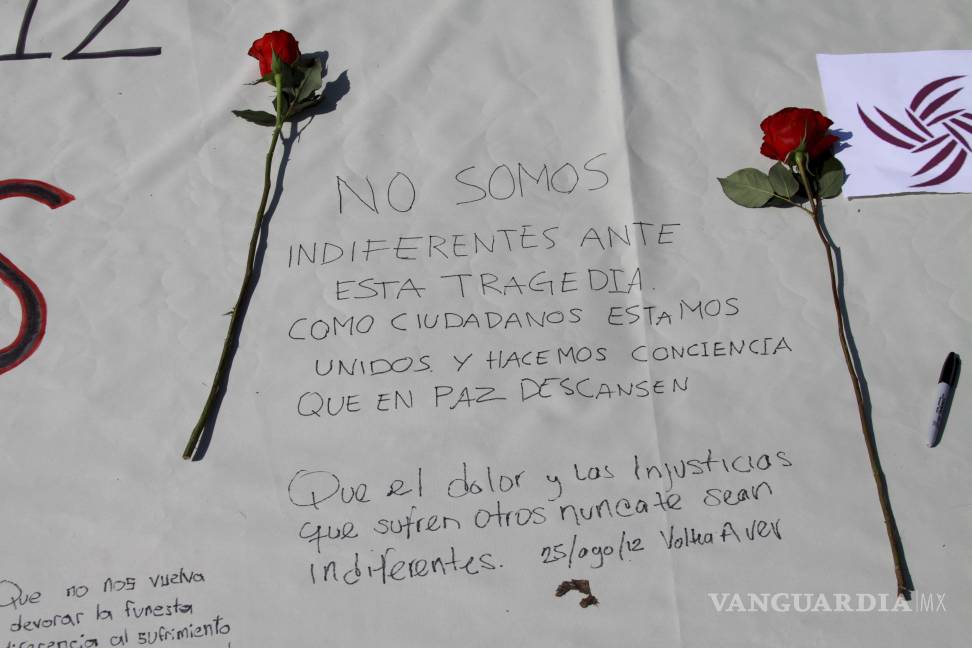 12
S
NO SOMOS
INDIFERENTES ANTE
ESTA TRAGEDIA.
COMO CIUDADANOS ESTAMOS
UNIDOS Y HACEMOS CONCIENCIA
QUE EN PAZ DESCANSEN
Que el dolor y las Injusticias
que sufren otros nunca te sean
indiferentes. 25/ago/12 Voltea A ver
Que no nos vuelva
devorar la funesta
al sufrimiento
VANGUARDIA|MX